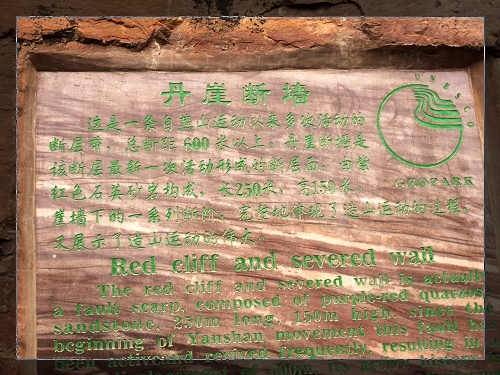 丹崖断墙
UNESCO
GEOPARK
这是一条自燕山运动以来多次活动的
断层带，总断距 600 米以上，丹崖断墙是
该断层最新一次活动形成的断层面，由紫
红色石英砂岩构成，长250米，高150米，
崖墙下的一系列断阶，完整地体现了造山运动的过程，
又展示了造山运动的伟大。
Red cliff and severed wall
The red cliff and severed wall is actually
a fault scarp, composed of purple-red quarzos
sandstone, 250m long, 150m high. since the
beginning of Yanshan movement this fault ha
been activeand revived frequently, resulting in
of 600m. Its